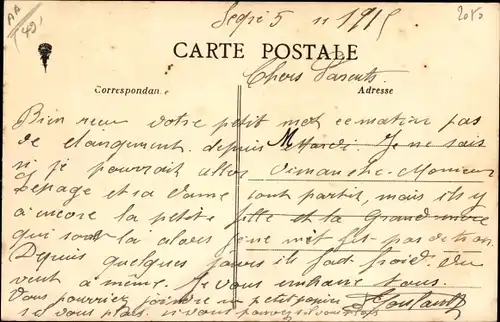 AA
49
Segré 5 11 1915
2050
CARTE POSTALE
Chers Parents
Correspondance
Adresse
Bien reçu votre petit mot ce matin pas
de changement depuis Mardi. Je ne sais
si je pourrait aller Dimanche. Monsieur
Lepage et sa dame sont partir, mais il y
a encore la petite fille et la Grand mère
qui sont là alors je ne
Depuis quelques jours il fait froid. du
vent a même. Je vous embrasse tous.
Vous pourriez joindre un petit papier
si vous plait